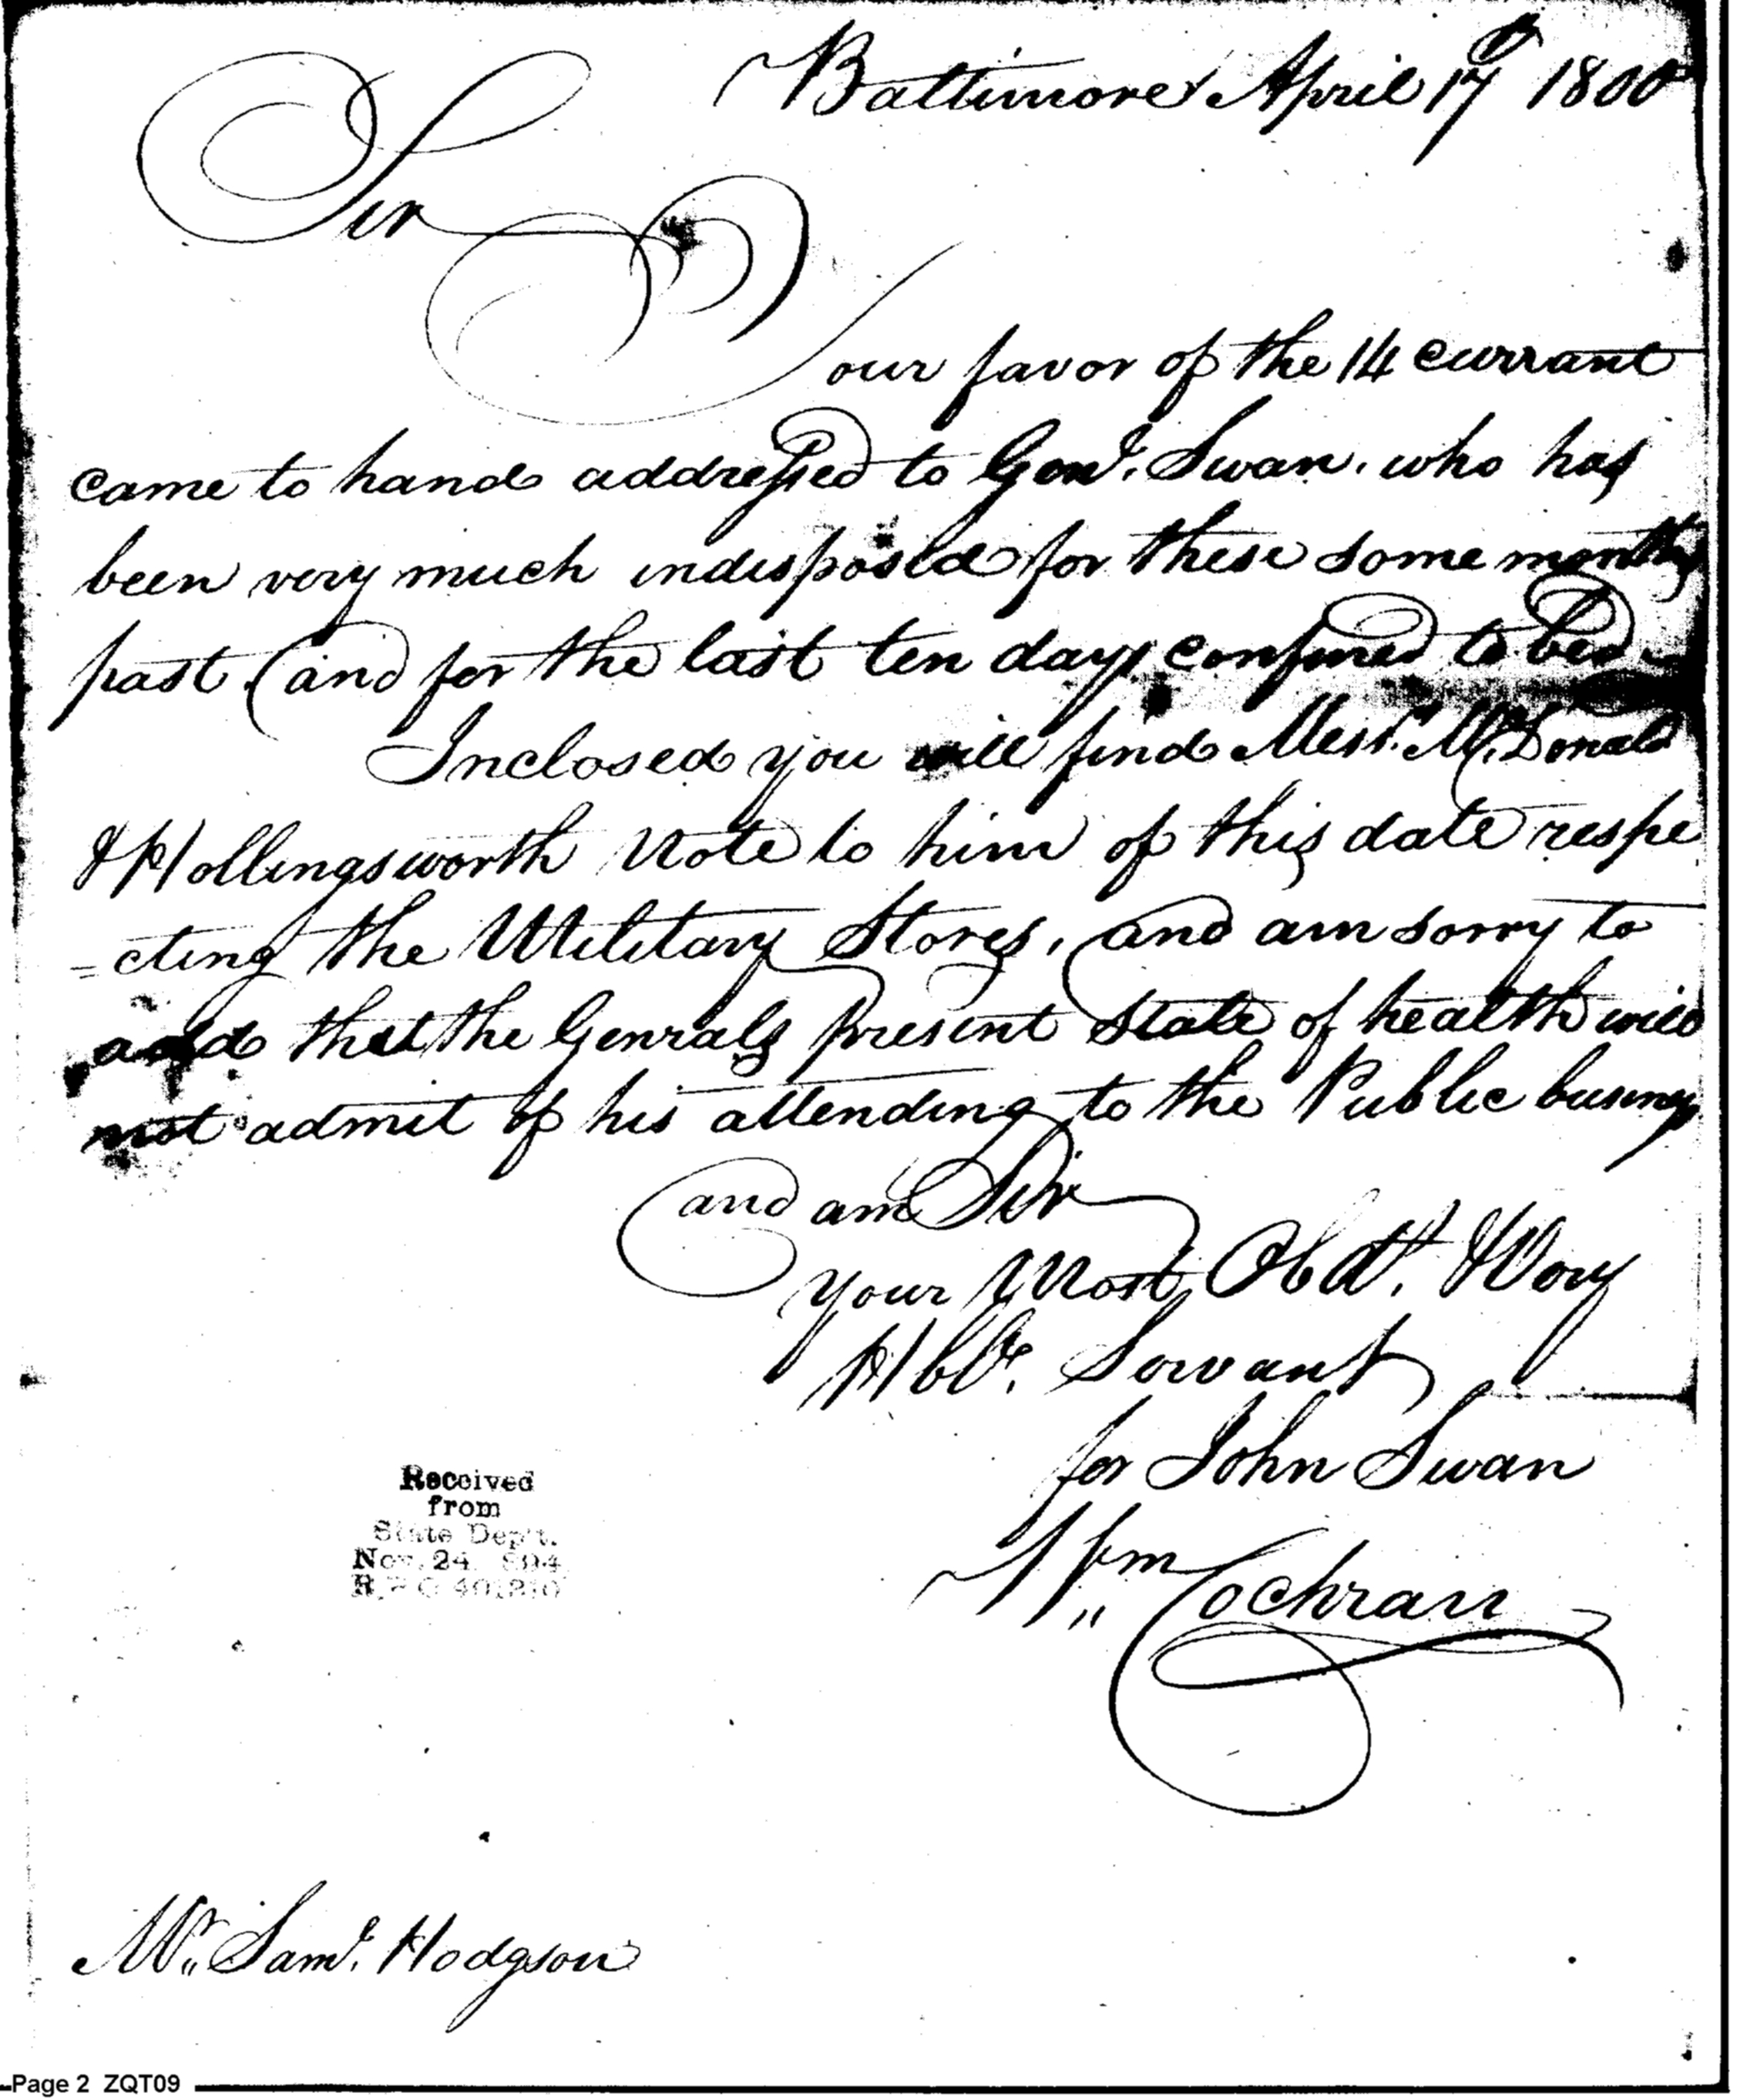 Baltimore April 17th 1800
Sir
Your favor of the 14 currant
came to hand addressed to Genl. Swan. who has
been very much indisposed for these some months
past. and for the last ten days confined to bed
Inclosed you will find Messrs. McDonald
& Hollingsworth Note to him of this date respe
=cting the Military Stores, and am sorry to
add that the Genrals present state of health will
not admit of his attending to the Public business
and am Sir
your Most Obdt. & Very
Hble. Servant
for John Swan
Wm Cochran
Received
from
State Dep't.
Nov. 24
Mr. Saml. Hodgson
Page 2 ZQT09